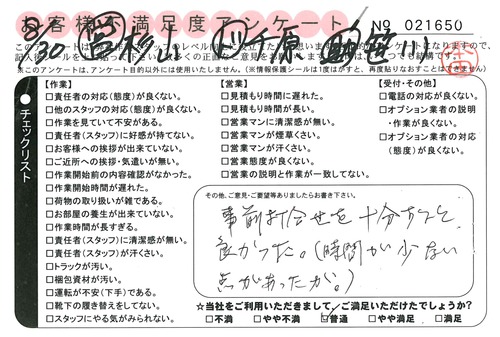 お客様不満足度アンケート
No 021650
8/30 杉山 千原 笹川
※このアンケートは、アンケート目的以外には使用いたしません。(※情報保護シールは1度はがすと、再度貼りなおすことはできません)
チェックリスト
【作業】
□責任者の対応(態度)が良くない。
□他のスタッフの対応(態度)が良くない。
□作業を見ていて不安がある。
□責任者(スタッフ)に好感が持てない。
□お客様への挨拶が出来ていない。
□ご近所への挨拶・気遣いが無い。
□作業開始前の内容確認がなかった。
□作業開始時間が遅れた。
□荷物の取り扱いが雑である。
□お部屋の養生が出来ていない。
□作業時間が長すぎる。
□責任者(スタッフ)に清潔感が無い。
□責任者(スタッフ)が汗くさい。
□トラックが汚い。
□梱包資材が汚い。
□運転が不安(下手)である。
□靴下の履き替えをしてない。
□スタッフにやる気がみられない。
【営業】
□見積もり時間に遅れた。
□見積もり時間が長い。
□営業マンに清潔感が無い。
□営業マンが煙草くさい。
□営業マンが汗くさい。
□営業態度が良くない。
□営業の説明と作業が一致してない。
【受付・その他】
□電話の対応が良くない。
□オプション業者の説明
・作業が良くない。
□オプション業者の対応
(態度)が良くない。
その他、ご意見・ご要望等ありましたらお書き下さい。
事前打合せを十分すると
良かった。(時間が少ない
点があったが。)
★当社をご利用いただきまして、ご満足いただけたでしょうか?
□不満 □やや不満 ☑普通 □やや満足 □満足